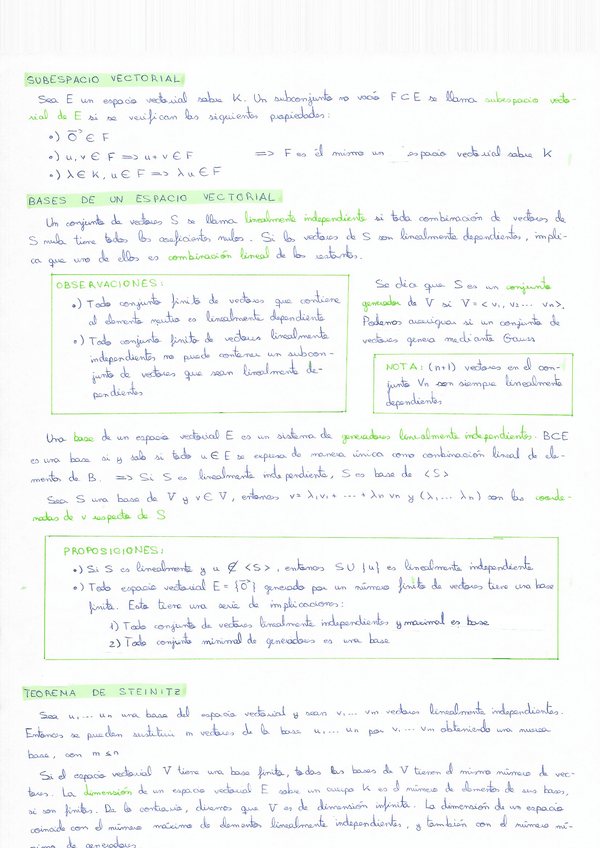 SUBESPACIO VECTORIAL
Sea E un espacio vectorial sobre K. Un subconjunto no vacío F⊂E se llama subespacio vecto-
rial de E si se verifican las siguientes propiedades:
•) 0⃗ ∈ F
•) u, v ∈ F => u+v ∈ F => F es él mismo un espacio vectorial sobre K
•) λ ∈ K, u ∈ F => λu ∈ F
BASES DE UN ESPACIO VECTORIAL
Un conjunto de vectores S se llama linealmente independiente si toda combinación de vectores de
S nula tiene todos los coeficientes nulos. Si los vectores de S son linealmente dependientes, impli-
ca que uno de ellos es combinación lineal de los restantes.
OBSERVACIONES:
•) Todo conjunto finito de vectores que contiene
al elemento neutro es linealmente dependiente
•) Todo conjunto finito de vectores linealmente
independientes no puede contener un subcon-
junto de vectores que sean linealmente de-
pendientes
Se dice que S es un conjunto
generador de V si V = < v₁, v₂ ... vn >.
Podemos averiguar si un conjunto de
vectores genera mediante Gauss
NOTA: (n+1) vectores en el con-
junto Vn son siempre linealmente
dependientes
Una base de un espacio vectorial E es un sistema de generadores linealmente independientes. B⊂E
es una base si y solo si todo u ∈ E se expresa de manera única como combinación lineal de ele-
mentos de B. => Si S es linealmente independiente, S es base de <S>
Sea S una base de V y v ∈ V, entonces v = λ₁v₁ + ... + λn vn y (λ₁ ... λn) son las coorde-
nadas de v respecto de S
PROPOSICIONES:
•) Si S es linealmente y u ∉ <S>, entonces S∪{u} es linealmente independiente
•) Todo espacio vectorial E = {0⃗} generado por un número finito de vectores tiene una base
finita. Esto tiene una serie de implicaciones:
1) Todo conjunto de vectores linealmente independientes y maximal es base
2) Todo conjunto minimal de generadores es una base
TEOREMA DE STEINITZ
Sea u₁ ... un una base del espacio vectorial y sean v₁ ... vm vectores linealmente independientes.
Entonces se pueden sustituir m vectores de la base u₁ ... un por v₁ ... vm obteniendo una nueva
base, con m ≤ n
Si el espacio vectorial V tiene una base finita, todas las bases de V tienen el mismo número de vec-
tores. La dimensión de un espacio vectorial E sobre un cuerpo K es el número de elementos de sus bases,
si son finitas. De lo contrario, diremos que V es de dimensión infinita. La dimensión de un espacio
coincide con el número máximo de elementos linealmente independientes, y también con el número mí-
nimo de generadores.